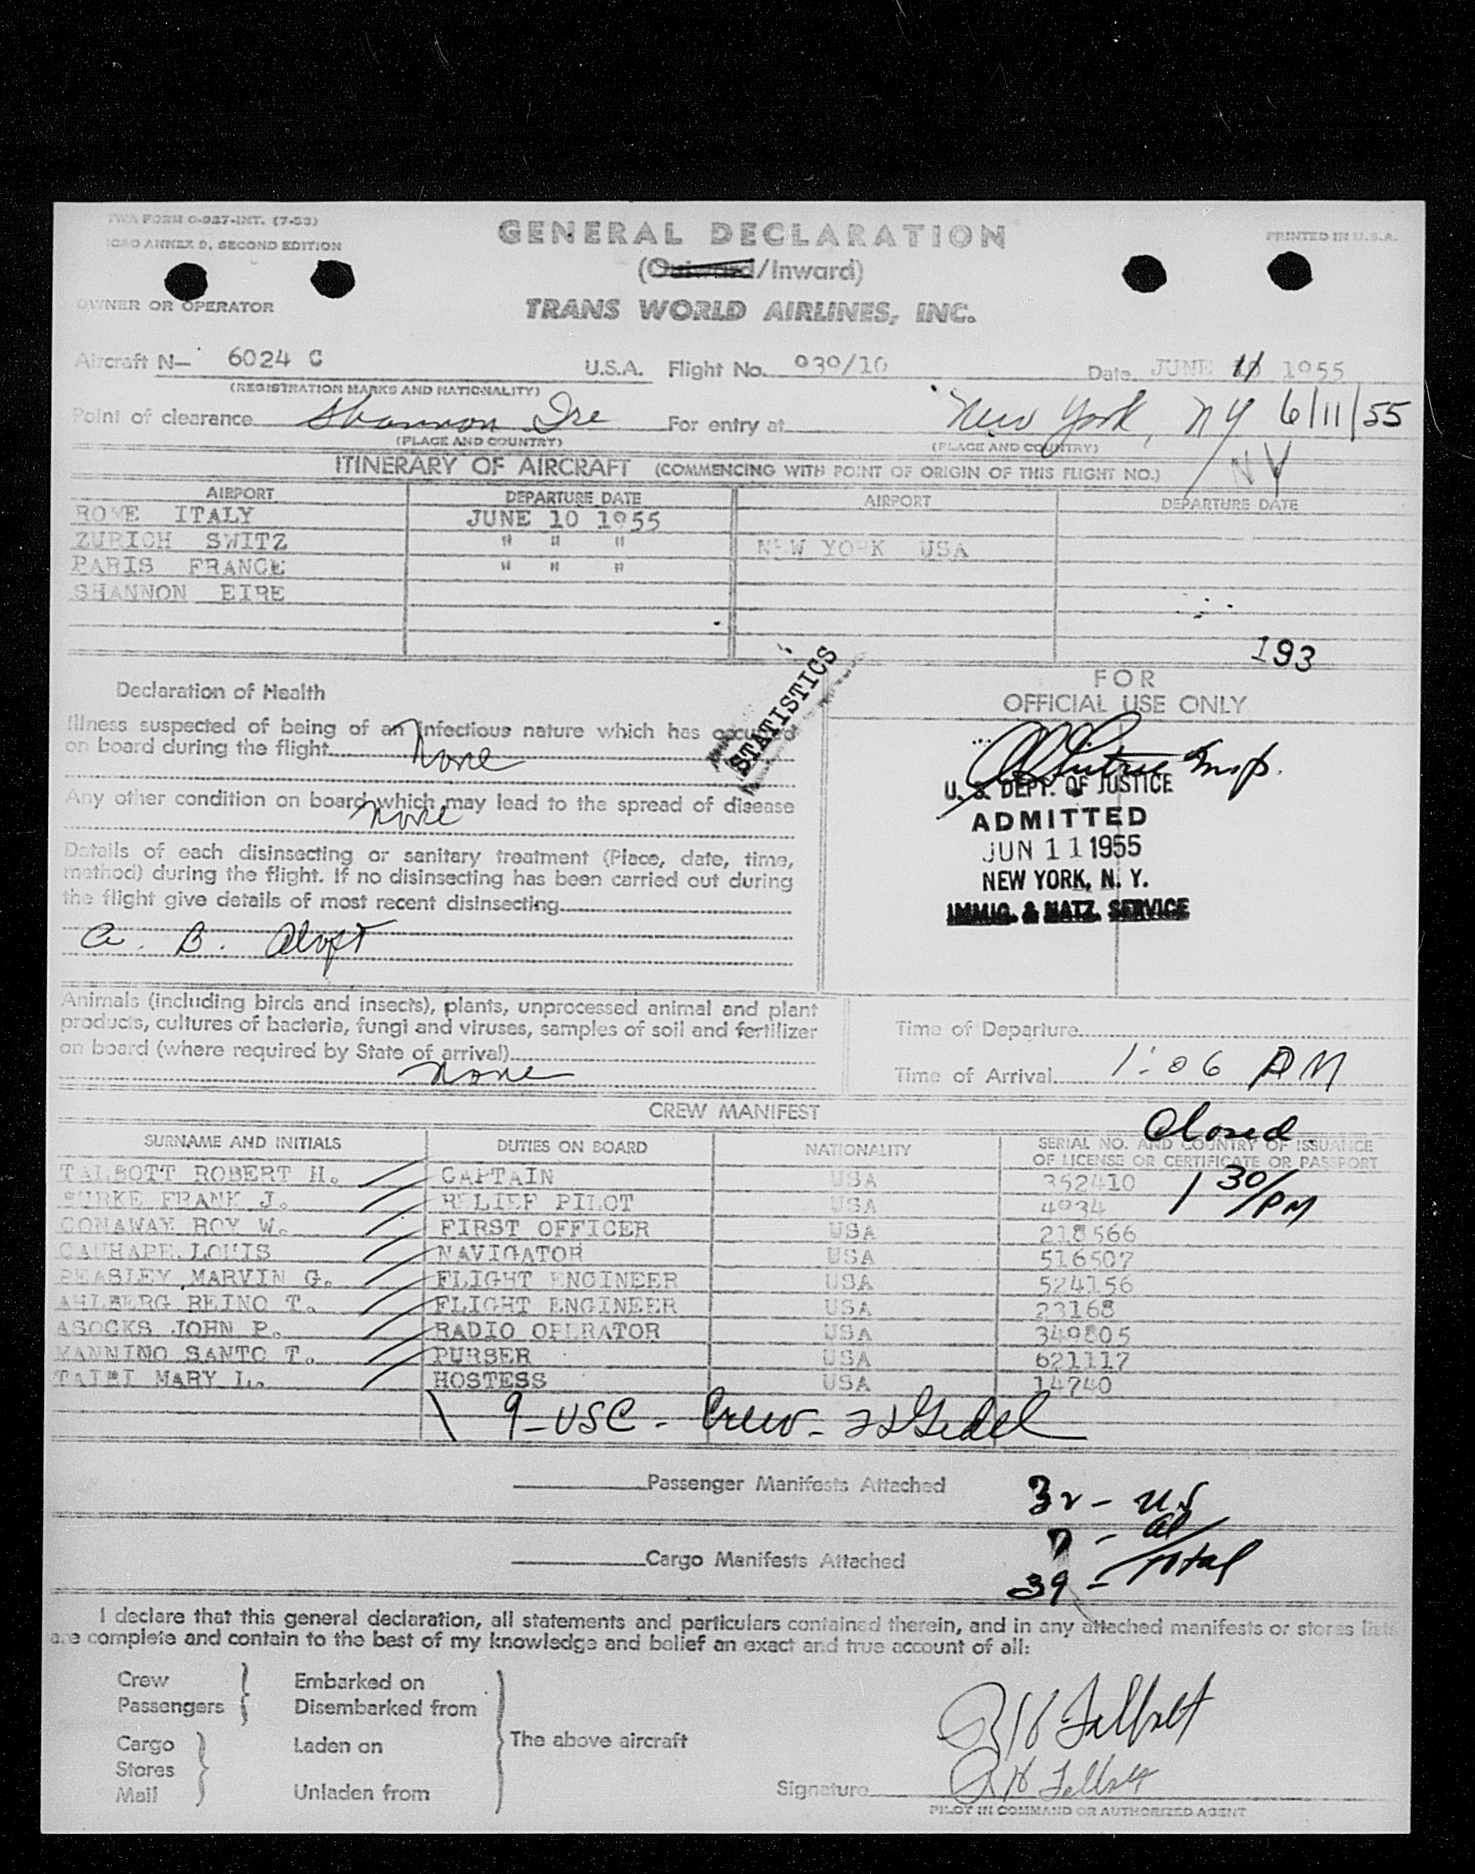 TWA FORM O-927-INT. (7-53)
ICAO ANNEX 9, SECOND EDITION
GENERAL DECLARATION
PRINTED IN U.S.A.
(Outward/Inward)
OWNER OR OPERATOR
TRANS WORLD AIRLINES, INC.
Aircraft N— 6024 C U.S.A. Flight No. 939/10 Date JUNE 11 1955
(REGISTRATION MARKS AND NATIONALITY)
Point of clearance Shannon Ire For entry at New York, NY 6/11/55
(PLACE AND COUNTRY) (PLACE AND COUNTRY)
NY
ITINERARY OF AIRCRAFT (COMMENCING WITH POINT OF ORIGIN OF THIS FLIGHT NO.)
AIRPORT DEPARTURE DATE AIRPORT DEPARTURE DATE
ROME ITALY JUNE 10 1955
ZURICH SWITZ " " " NEW YORK USA
PARIS FRANCE " " "
SHANNON EIRE
193
Declaration of Health
FOR
OFFICIAL USE ONLY
Illness suspected of being of an infectious nature which has occurred
on board during the flight None
STATISTICS
Any other condition on board which may lead to the spread of disease
None
Details of each disinsecting or sanitary treatment (Place, date, time,
method) during the flight. If no disinsecting has been carried out during
the flight give details of most recent disinsecting
A. B. Aloft
Insp.
U. S. DEPT. OF JUSTICE
ADMITTED
JUN 11 1955
NEW YORK, N. Y.
IMMIG. & NATZ. SERVICE
Animals (including birds and insects), plants, unprocessed animal and plant
products, cultures of bacteria, fungi and viruses, samples of soil and fertilizer
on board (where required by State of arrival)
None
Time of Departure
Time of Arrival 1:06 PM
Closed
1 30/PM
CREW MANIFEST
SURNAME AND INITIALS DUTIES ON BOARD NATIONALITY SERIAL NO. AND COUNTRY OF ISSUANCE
OF LICENSE OR CERTIFICATE OR PASSPORT
TALBOTT ROBERT H. CAPTAIN USA 352410
BURKE FRANK J. RELIEF PILOT USA 4934
CONAWAY ROY W. FIRST OFFICER USA 218566
LOUIS NAVIGATOR USA 516507
PEASLEY MARVIN G. FLIGHT ENGINEER USA 524156
AHLBERG REINO T. FLIGHT ENGINEER USA 23168
ASOCKS JOHN P. RADIO OPERATOR USA 349805
MANNINO SANTO T. PURSER USA 621117
MARY L. HOSTESS USA 14740
9 - USC - Crew -
Passenger Manifests Attached
32 - US
7 - al
Cargo Manifests Attached
39 - Total
I declare that this general declaration, all statements and particulars contained therein, and in any attached manifests or stores lists
are complete and contain to the best of my knowledge and belief an exact and true account of all:
Crew Embarked on
Passengers Disembarked from
Cargo Laden on The above aircraft
Stores
Mail Unladen from
R H Talbott
Signature R H Talbott
PILOT IN COMMAND OR AUTHORIZED AGENT